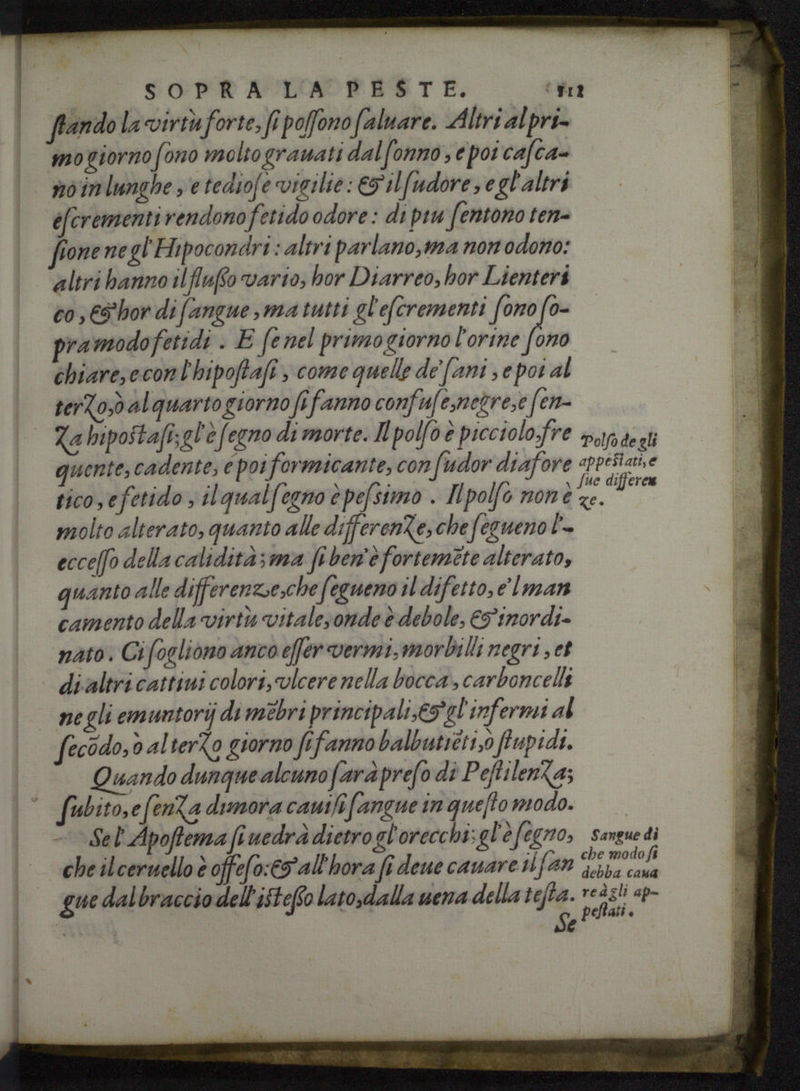 SOPRA LA PESTE.
ſtando la virtù forte, ſi poſſono ſaluare. Altri al pri-
mo giorno ſono molto grauati dal ſonno, e poi caſca-
no in lunghe, e tedioſe vigilie: & il ſudore, e gl'altri
eſcrementi rendono fetido odore: di piu ſentono ten-
ſione ne gl'Hipocondri: altri parlano, ma non odono:
altri hanno il fluſſo vario, hor Diarreo, hor Lienteri
co, & hor di ſangue, ma tutti gl'eſcrementi ſono ſo-
pra modo fetidi. E ſe nel primo giorno l'orine ſono
chiare, e con l'hipoſtaſi, come quelle de' ſani, e poi al
terzo, ò al quarto giorno ſi fanno confuſe, negre, e ſen-
za hipoſtaſi; gl'è ſegno di morte. Il polſo è picciolo, fre
quente, cadente, e poi formicante, con ſudor diafore
tico, e fetido, il qual ſegno è peſsimo. Il polſo non è
molto alterato, quanto alle differenze, che ſegueno l'-
ecceſſo della calidità; ma ſi ben' è fortemẽte alterato,
quanto alle differenze, che ſegueno il difetto, e'l man
camento della virtù vitale, onde è debole, & inordi-
nato. Ci ſogliono anco eſſer vermi, morbilli negri, et
di altri cattiui colori, vlcere nella bocca, carboncelli
ne gli emuntorij di mẽbri principali, & gl'infermi al
ſecõdo, ò al terzo giorno ſi fanno balbutiẽti, ò ſtupidi.
Quando dunque alcuno ſarà preſo di Peſtilenza;
ſubito, e ſenza dimora cauiſi ſangue in queſto modo.
Se l'Apoſtema ſi uedrà dietro gl'orecchi; gl'è ſegno,
che il ceruello è offeſo: & all'hora ſi deue cauare il ſan
gue dal braccio dell'iſteſſo lato, dalla uena della teſta.
Se
Polſo de gli
appeſtati, e
ſue differen
ze.
Sangue di
che modo ſi
debba caua
re à gli ap-
peſtati.